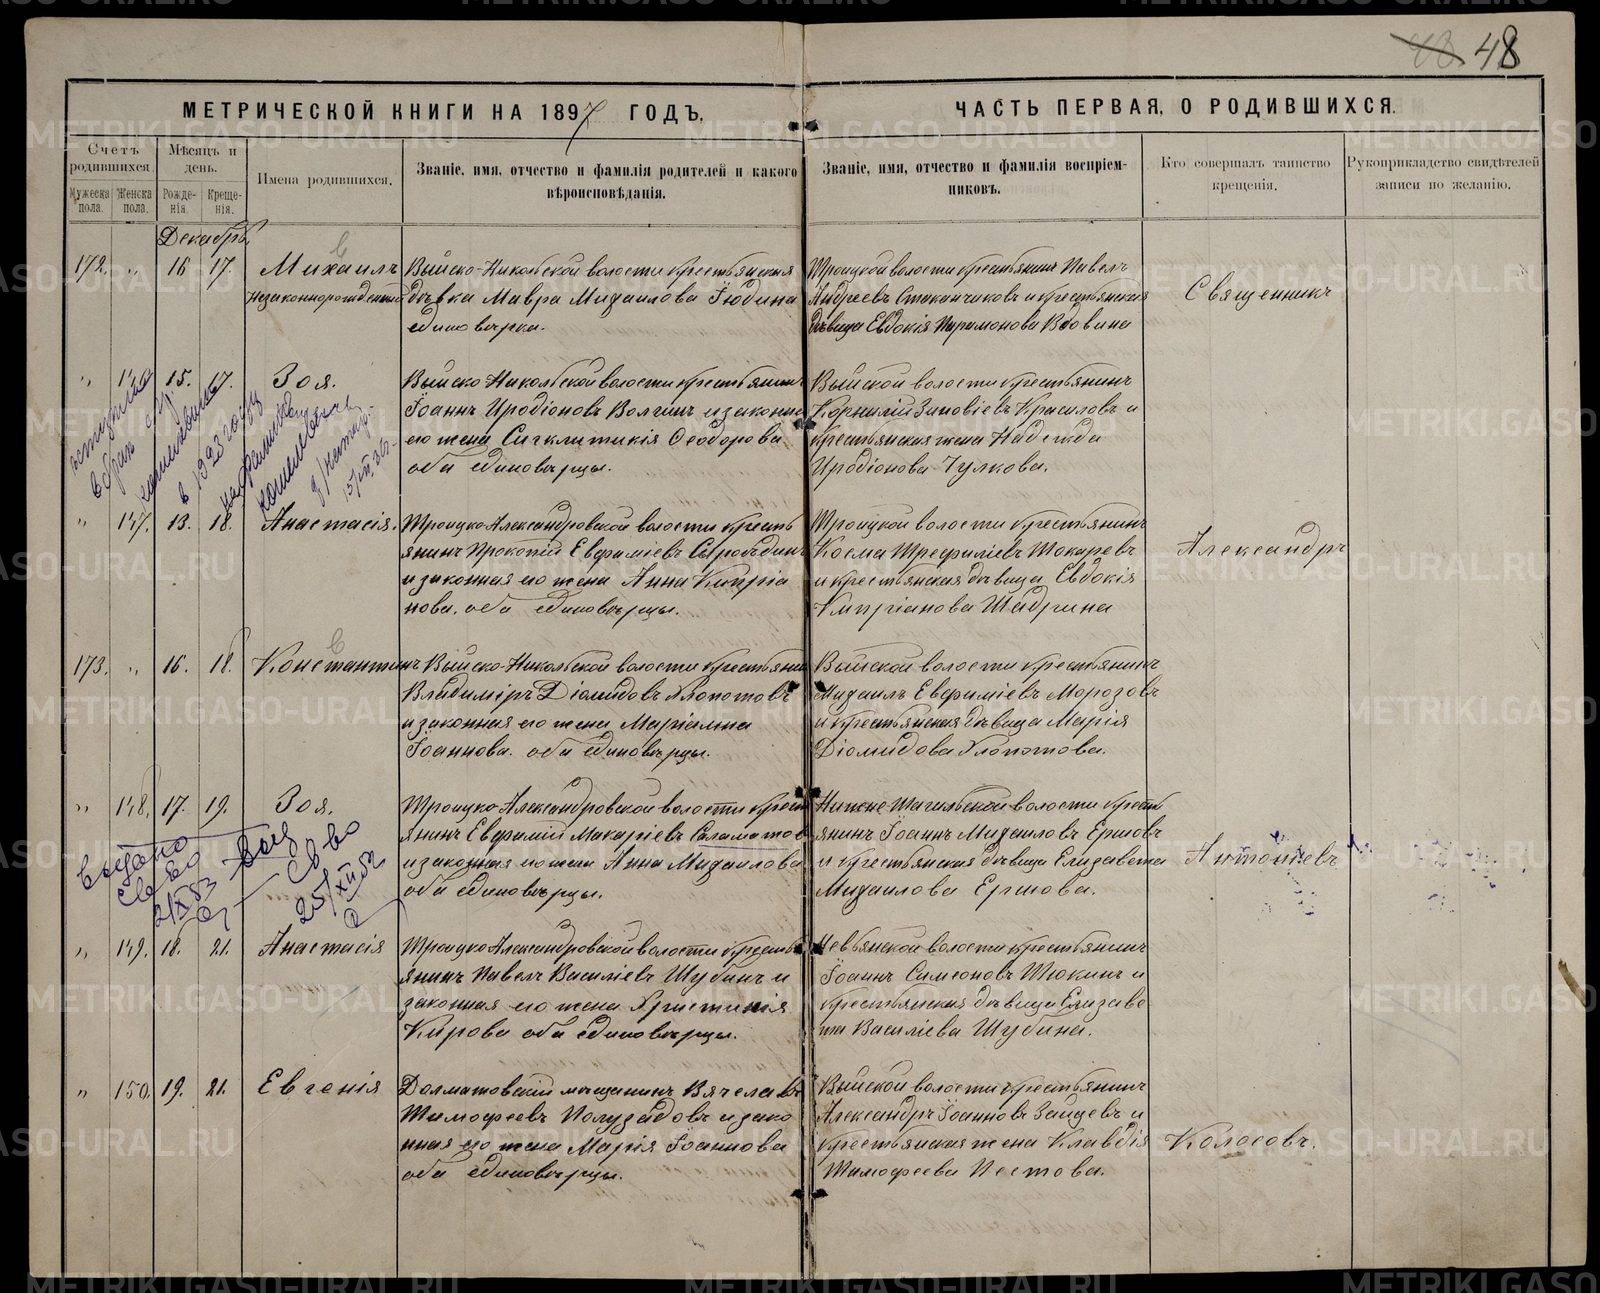 48
МЕТРИЧЕСКОЙ КНИГИ НА 1897 ГОДЪ,
ЧАСТЬ ПЕРВАЯ, О РОДИВШИХСЯ.
Счетъ родившихся.
Мѣсяцъ и день.
Имена родившихся.
Званіе, имя, отчество и фамилія родителей и какого вѣроисповѣданія.
Званіе, имя, отчество и фамилія воспріемниковъ.
Кто совершалъ таинство крещенія.
Рукоприкладство свидѣтелей записи по желанію.
Мужеска пола.
Женска пола.
Рожденія.
Крещенія.
Декабрь
172. „ 16 17. Михаилъ
незаконнорожденный
Выйско-Никольской волости крестьянская
дѣвка Мавра Михаилова Юдина
единовѣрка.
Троицкой волости крестьянинъ Павелъ
Андреевъ Стаканчиковъ и крестьянская
дѣвица Евдокія Парамонова Вдовина
Священникъ
„ 146 15. 17. Зоя.
Выйско Никольской волости крестьянинъ
Іоаннъ Иродіоновъ Волгинъ и законная
его жена Сигклитикія Ѳеодорова
оба единовѣрцы.
Выйской волости крестьянинъ
Корнилій Зиновіевъ Красиловъ и
крестьянская жена Надежда
Иродіонова Чулкова.
вступила
в брак с гр.
в 1923 году
„ 147. 13. 18. Анастасія.
Троицко-Александровской волости кресть
янинъ Прокопій Евѳиміевъ Сыроѣдинъ
и законная его жена Анна Кипріа
нова. оба единовѣрцы.
Троицкой волости крестьянинъ
Косма Трефиліевъ Токаревъ
и крестьянская дѣвица Евдокія
Кипріанова Шадрина
Александръ
173. „ 16. 18. Константинъ
Выйско-Никольской волости крестьянин
Владиміръ Діомидовъ Хлопотовъ
и законная его жена Маріамна
Іоаннова. оба единовѣрцы.
Выйской волости крестьянинъ
Михаилъ Евѳиміевъ Морозовъ
и крестьянская дѣвица Марія
Діомидова Хлопотова.
„ 148. 17. 19. Зоя.
Троицко-Александровской волости кресть
янинъ Евѳимій Макаріевъ Саламатов
и законная его жена Анна Михаилова
оба единовѣрцы.
Нижне-Тагильской волости кресть
янинъ Іоаннъ Михаиловъ Ершовъ
и крестьянская дѣвица Елизавета
Михаилова Ершова.
Антоніевъ
Выдано
св-во
2/X 53
св-во
25/XII 52
„ 149. 18. 21. Анастасія
Троицко Александровской волости кресть
янинъ Павелъ Василіевъ Шубинъ и
законная его жена Христинія
Кирова оба единовѣрцы.
Невьянской волости крестьянинъ
Іоаннъ Симеоновъ Тюкинъ и
крестьянская дѣвица Елизаве
та Василіева Шубина.
„ 150. 19. 21. Евгенія
Долматовскій мѣщанинъ Вячеславъ
Тимофеевъ Полузадовъ и зако
нная его жена Марія Іоаннова
оба единовѣрцы.
Выйской волости крестьянинъ
Александръ Іоанновъ Зайцевъ и
крестьянская жена Клавдія
Тимофеева Пестова.
Колосовъ.
METRIKI.GASO-URAL.RU